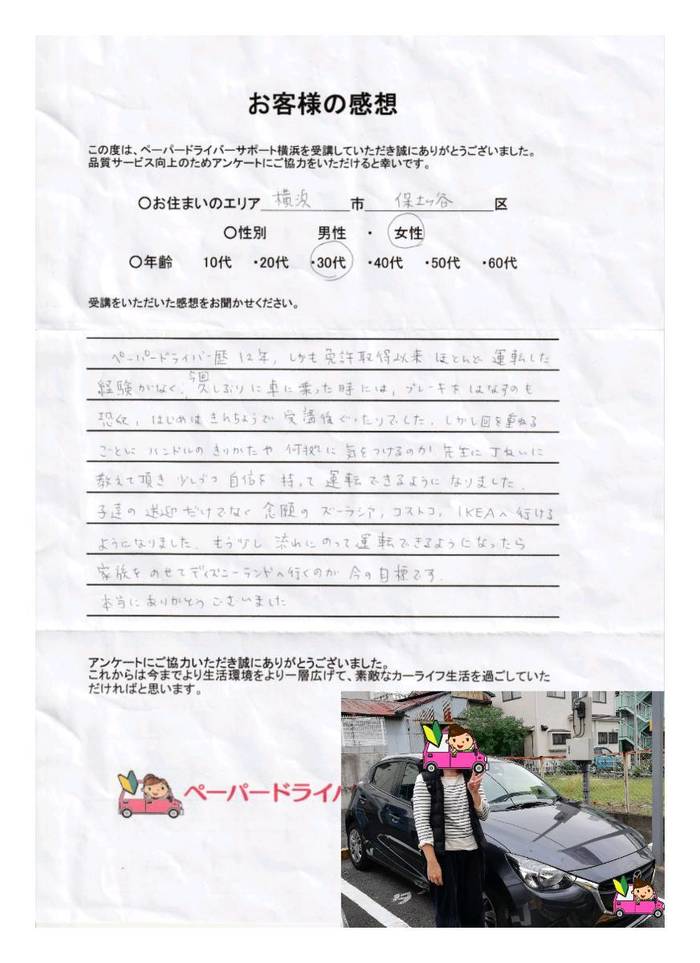 お客様の感想
この度は、ペーパードライバーサポート横浜を受講していただき誠にありがとうございました。
品質サービス向上のためアンケートにご協力をいただけると幸いです。
〇お住まいのエリア 横浜 市 保土ヶ谷 区
〇性別 男性 ・ 女性
〇年齢 10代 ・20代 ・30代 ・40代 ・50代 ・60代
受講をいただいた感想をお聞かせください。
ペーパードライバー歴 12年、しかも免許取得以来 ほとんど 運転した
経験がなく、今回久しぶりに車に乗った時には、ブレーキをはなすのも
恐くて、はじめは きんちょうで 受講後ぐったりでした。しかし回を重ねる
ごとに ハンドルの きりかたや 何処に 気をつけるのか 先生に ていねいに
教えて頂き 少しづつ 自信を 持って 運転できるように なりました。
子達の 送迎だけでなく 念願の ズーラシア、コストコ、IKEAへ行ける
ようになりました。もう少し 流れにのって運転できるようになったら
家族を のせて ディズニーランドへ行くのが 今の目標です。
本当に ありがとう ございました
アンケートにご協力いただき誠にありがとうございました。
これからは今までより生活環境をより一層広げて、素敵なカーライフ生活を過ごしていた
だければと思います。
ペーパードライバ